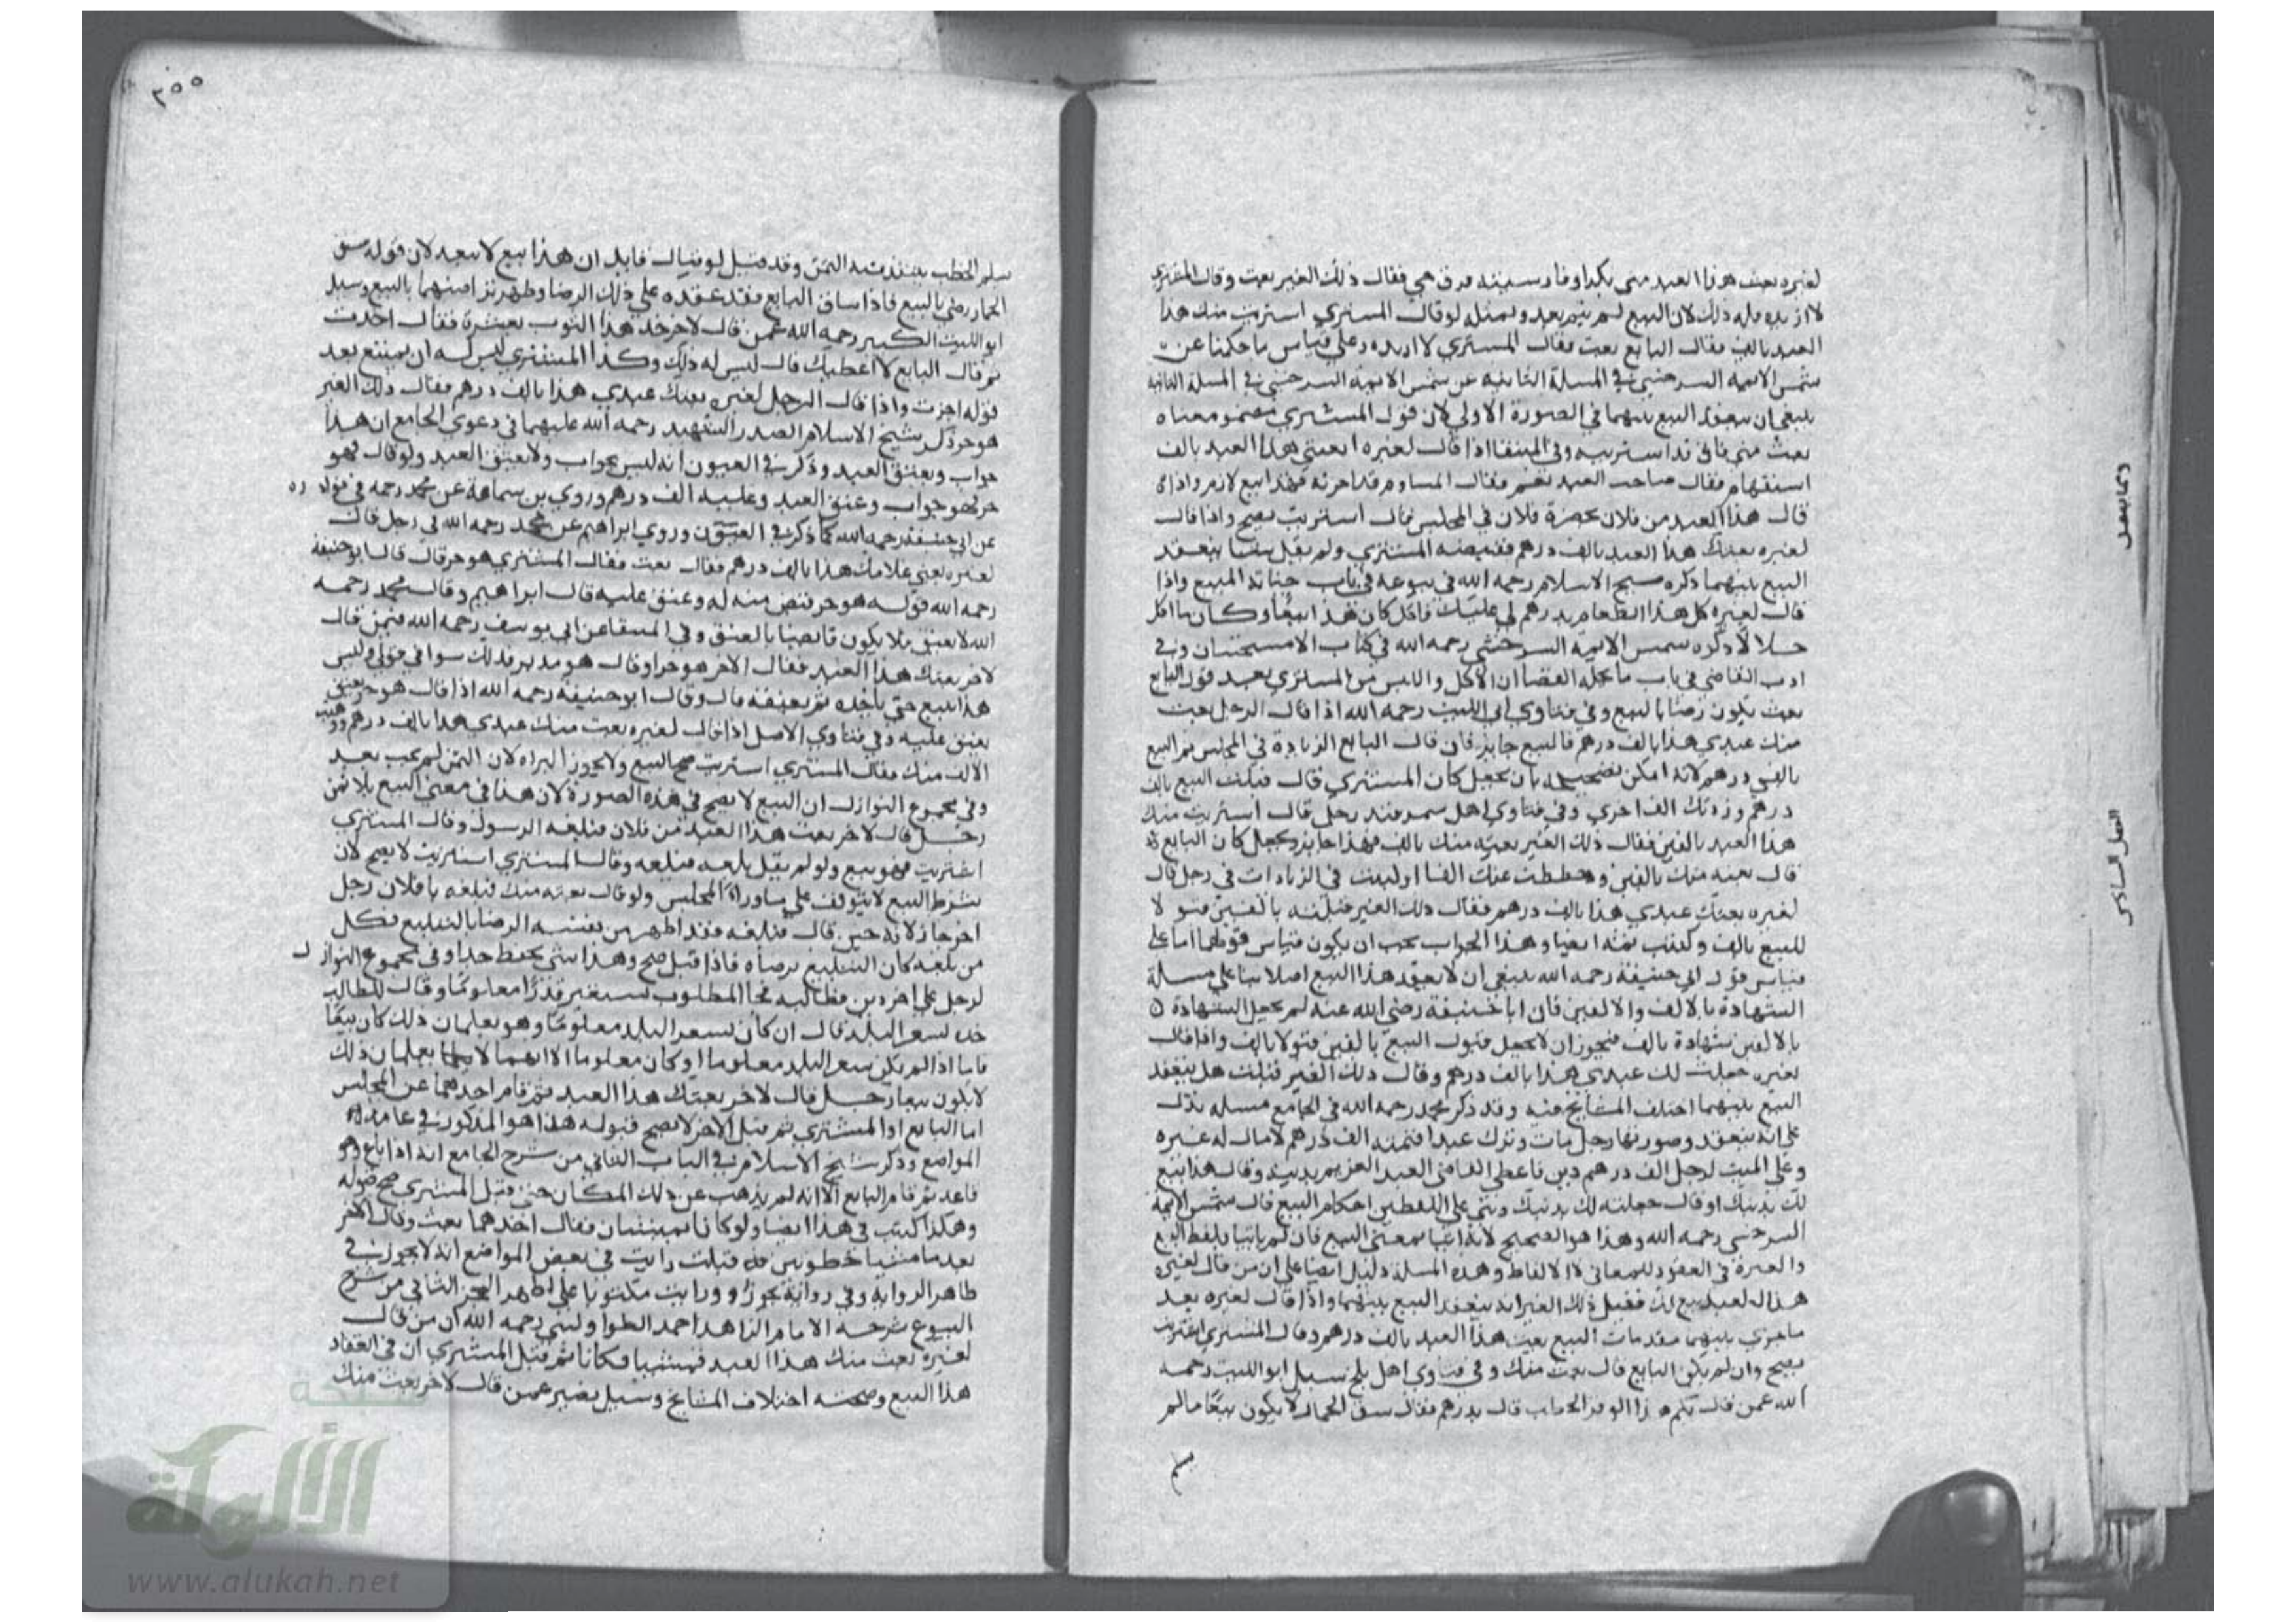 لغيره بعت هذا العبد مني بكذا وفارسيته فقال ذلك الغير بعت وقال المشتري
لا اريده فله ذلك لان البيع لم يتم بعد وبمثله لو قال المشتري اشتريت منك هذا
العبد بالف فقال البايع بعت فقال المشتري لا اريده وعلي قياس ما حكينا عن
شمس الايمه السرخسي في المسلة الثانيه
ينبغي ان ينعقد البيع بينهما في الصورة الاولي لان قول المشتري معناه
بعت مني فاني قد اشتريته وفي المنتقا اذا قال لغيره ابعتني هذا العبد بالف
استفهام فقال صاحب العبد نعم فقال المساوم قد اخذته فهذا بيع لازم واذا
قال هذا العبد من فلان بحضرة فلان في المجلس فقال اشتريت يصح واذا قال
لغيره بعتك هذا العبد بالف درهم فقبضه المشتري ولم يقل شيئا ينعقد
البيع بينهما ذكره شيخ الاسلام رحمه الله في بيوعه في باب جناية المبيع واذا
قال لغيره كل هذا الطعام بدرهم لي عليك فاكل كان هذا بيعا وكان ما اكل
حلالا ذكره شمس الايمة السرخسي رحمه الله في كتاب الاستحسان وفي
ادب القاضي في باب ما يحله القضا ان الاكل واللبس من المشتري بعد قول البايع
بعت يكون رضا بالبيع وفي فتاوي ابي الليث رحمه الله اذا قال الرجل بعت
منك عبدي هذا بالف درهم فالبيع جايز فان قال البايع الزيادة في المجلس تم البيع
بالفي درهم لانه امكن تصحيحه بان يجعل كان المشتري قال قبلت البيع بالف
درهم وزدتك الف اخري وفي فتاوي اهل سمرقند رجل قال اشتريت منك
هذا العبد بالفين فقال ذلك الغير بعته منك بالف فهذا جايز ويجعل كان البايع
قال بعته منك بالفين وحططت عنك الفا او ليت في الزيادات في رجل قال
لغيره بعتك عبدي هذا بالف درهم فقال ذلك الغير قبلته بالفين
للبيع بالف وهذا الجواب يجب ان يكون قياس قولهما اما علي
قياس قول ابي حنيفة رحمه الله ينبغي ان لا ينعقد هذا البيع اصلا بنا علي مسلة
الشهادة بالالف والالفين فان ابا حنيفة رضي الله عنه لم يجعل الشهادة
بالالفين شهادة بالف فيجوز ان لا يجعل قبول البيع بالفين قبولا بالف واذا قال
لغيره جعلت لك عبدي هذا بالف درهم وقال ذلك الغير قبلت هل ينعقد
البيع بينهما اختلف المشايخ فيه وقد ذكر محمد رحمه الله في الجامع مسلة تدل
علي انه ينعقد وصورتها رجل مات وترك عبدا قيمته الف درهم لا مال له غيره
وعلي الميت لرجل الف درهم دين فاعطي القاضي العبد الغريم بدينه وقال هذا بيع
لك بدينك او قال جعلته لك بدينك علي اللفظين احكام البيع قال شمس الايمة
السرخسي رحمه الله وهذا هو الصحيح لانه اتيا بمعني البيع فان لم ياتيا بلفظ البيع
والعبرة في العقود للمعاني لا الالفاظ وهذه المسلة دليل ايضا علي ان من قال لغيره
هذا العبد بيع لك فقبل ذلك الغير انه ينعقد البيع بينهما واذا قال لغيره بعد
ما جري بينهما مقدمات البيع بعت هذا العبد بالف درهم وقال المشتري اشتريت
يصح وان لم يكن البايع قال بعت منك وفي فتاوي اهل بلخ سيل ابو الليث رحمه
الله عمن قال بكم هذا الوقر الحطب قال بدرهم فقال سق الحمار لا يكون بيعا ما لم
يسلم
وبما يتصل
الفصل السادس
٢٥٥
يسلم الحطب وقد قيل لو قال قايل ان هذا بيع لا يبعد لان قوله سق
الحمار رضي بالبيع فاذا ساق البايع فقد عقده علي ذلك الرضا وظهر تراضيهما بالبيع وسيل
ابو الليث الكبير رحمه الله عمن قال لاخر خذ هذا الثوب بعشرة فقال اخذت
ثم قال البايع لا اعطيك قال ليس له ذلك وكذا المشتري ليس له ان يمتنع بعد
قوله اجزت واذا قال الرجل لغيره بعتك عبدي هذا بالف درهم فقال ذلك الغير
هو حر ذكر شيخ الاسلام الصدر الشهيد رحمة الله عليهما في دعوي الجامع ان هذا
جواب ويعتق العبد وذكر في العيون انه ليس بجواب ولا يعتق العبد ولو قال فهو
حر فهو جواب وعتق العبد وعليه الف درهم وروي بن سماعة عن محمد رحمه في قوله
عن ابي حنيفة رحمه الله كما ذكر في العيون وروي ابراهيم عن محمد رحمه الله في رجل قال
لغيره بعني غلامك هذا بالف درهم فقال بعت فقال المشتري هو حر قال قال ابو حنيفة
رحمه الله قوله هو حر قبض منه له وعتق عليه قال ابراهيم وقال محمد رحمه
الله لا يعتق ولا يكون قابضا بالعتق وفي المنتقا عن ابي يوسف رحمه الله فيمن قال
لاخر بعتك هذا العبد فقال الاخر هو حر او قال هو مدبر فذلك سوا في قولي وليس
هذا ببيع حتي ياخذه ثم يعتقه قال وقال ابو حنيفة رحمه الله اذا قال هو حر يعتق
يعتق عليه وفي فتاوي الاصل اذا قال لغيره بعت منك عبدي هذا بالف درهم ووهبت
الالف منك فقال المشتري اشتريت صح البيع ولا يجوز البراه لان الثمن لم يجب بعد
وفي مجموع النوازل ان البيع لا يصح في هذه الصورة لان هذا في معني البيع بلا ثمن
رجل قال لاخر بعت هذا العبد من فلان فبلغه الرسول وقال المشتري
اشتريت فهو بيع ولو لم يقل بلغه فبلغه وقال المشتري اشتريت لا يصح لان
شرط البيع لا يتوقف علي ما وراء المجلس ولو قال بعته منك فبلغه يا فلان رجل
اخر جاز لانه حين قال فبلغه فقد اظهر من نفسه الرضا بالتبليغ فكل
من بلغه كان التبليغ برضاه فاذا قبل صح وهذا شي يحفظ جدا وفي مجموع النوازل
لرجل علي اخر دين فطالبه فجا المطلوب بشعير قدرا معلوما وقال للطالب
خذه بسعر البلد قال ان كان سعر البلد معلوما وهو يعلمان ذلك كان بيعا
فاما اذا لم يكن سعر البلد معلوما او كان معلوما الا انهما لا يعلمان ذلك
لا يكون بيعا رجل قال لاخر بعتك هذا العبد ثم قام احدهما عن المجلس
اما البايع او المشتري ثم قبل الاخر لا يصح قبوله هذا هو المذكور في عامة
المواضع وذكر شيخ الاسلام في الباب الثاني من شرح الجامع انه اذا باع وهو
قاعد ثم قام البايع الا انه لم يذهب عن ذلك المكان حتي قبل المشتري صح قبوله
وهكذا كتب في هذا ايضا ولو كانا يمشيان فقال احدهما بعت وقال الاخر
بعد ما مشيا خطوتين قبلت رايت في بعض المواضع انه لا يجوز في
ظاهر الرواية وفي رواية يجوز ورايت مكتوبا علي ظهر الجزء الثاني من شرح
البيوع شرحه الامام الزاهد احمد الطواويسي رحمه الله ان من قال
لغيره بعت منك هذا العبد فمشيا فكانا ثم قبل المشتري ان في انعقاد
هذا البيع وصحته اختلاف المشايخ وسيل نصير عمن قال لاخر بعت منك
شبكة
الألوكة
www.alukah.net